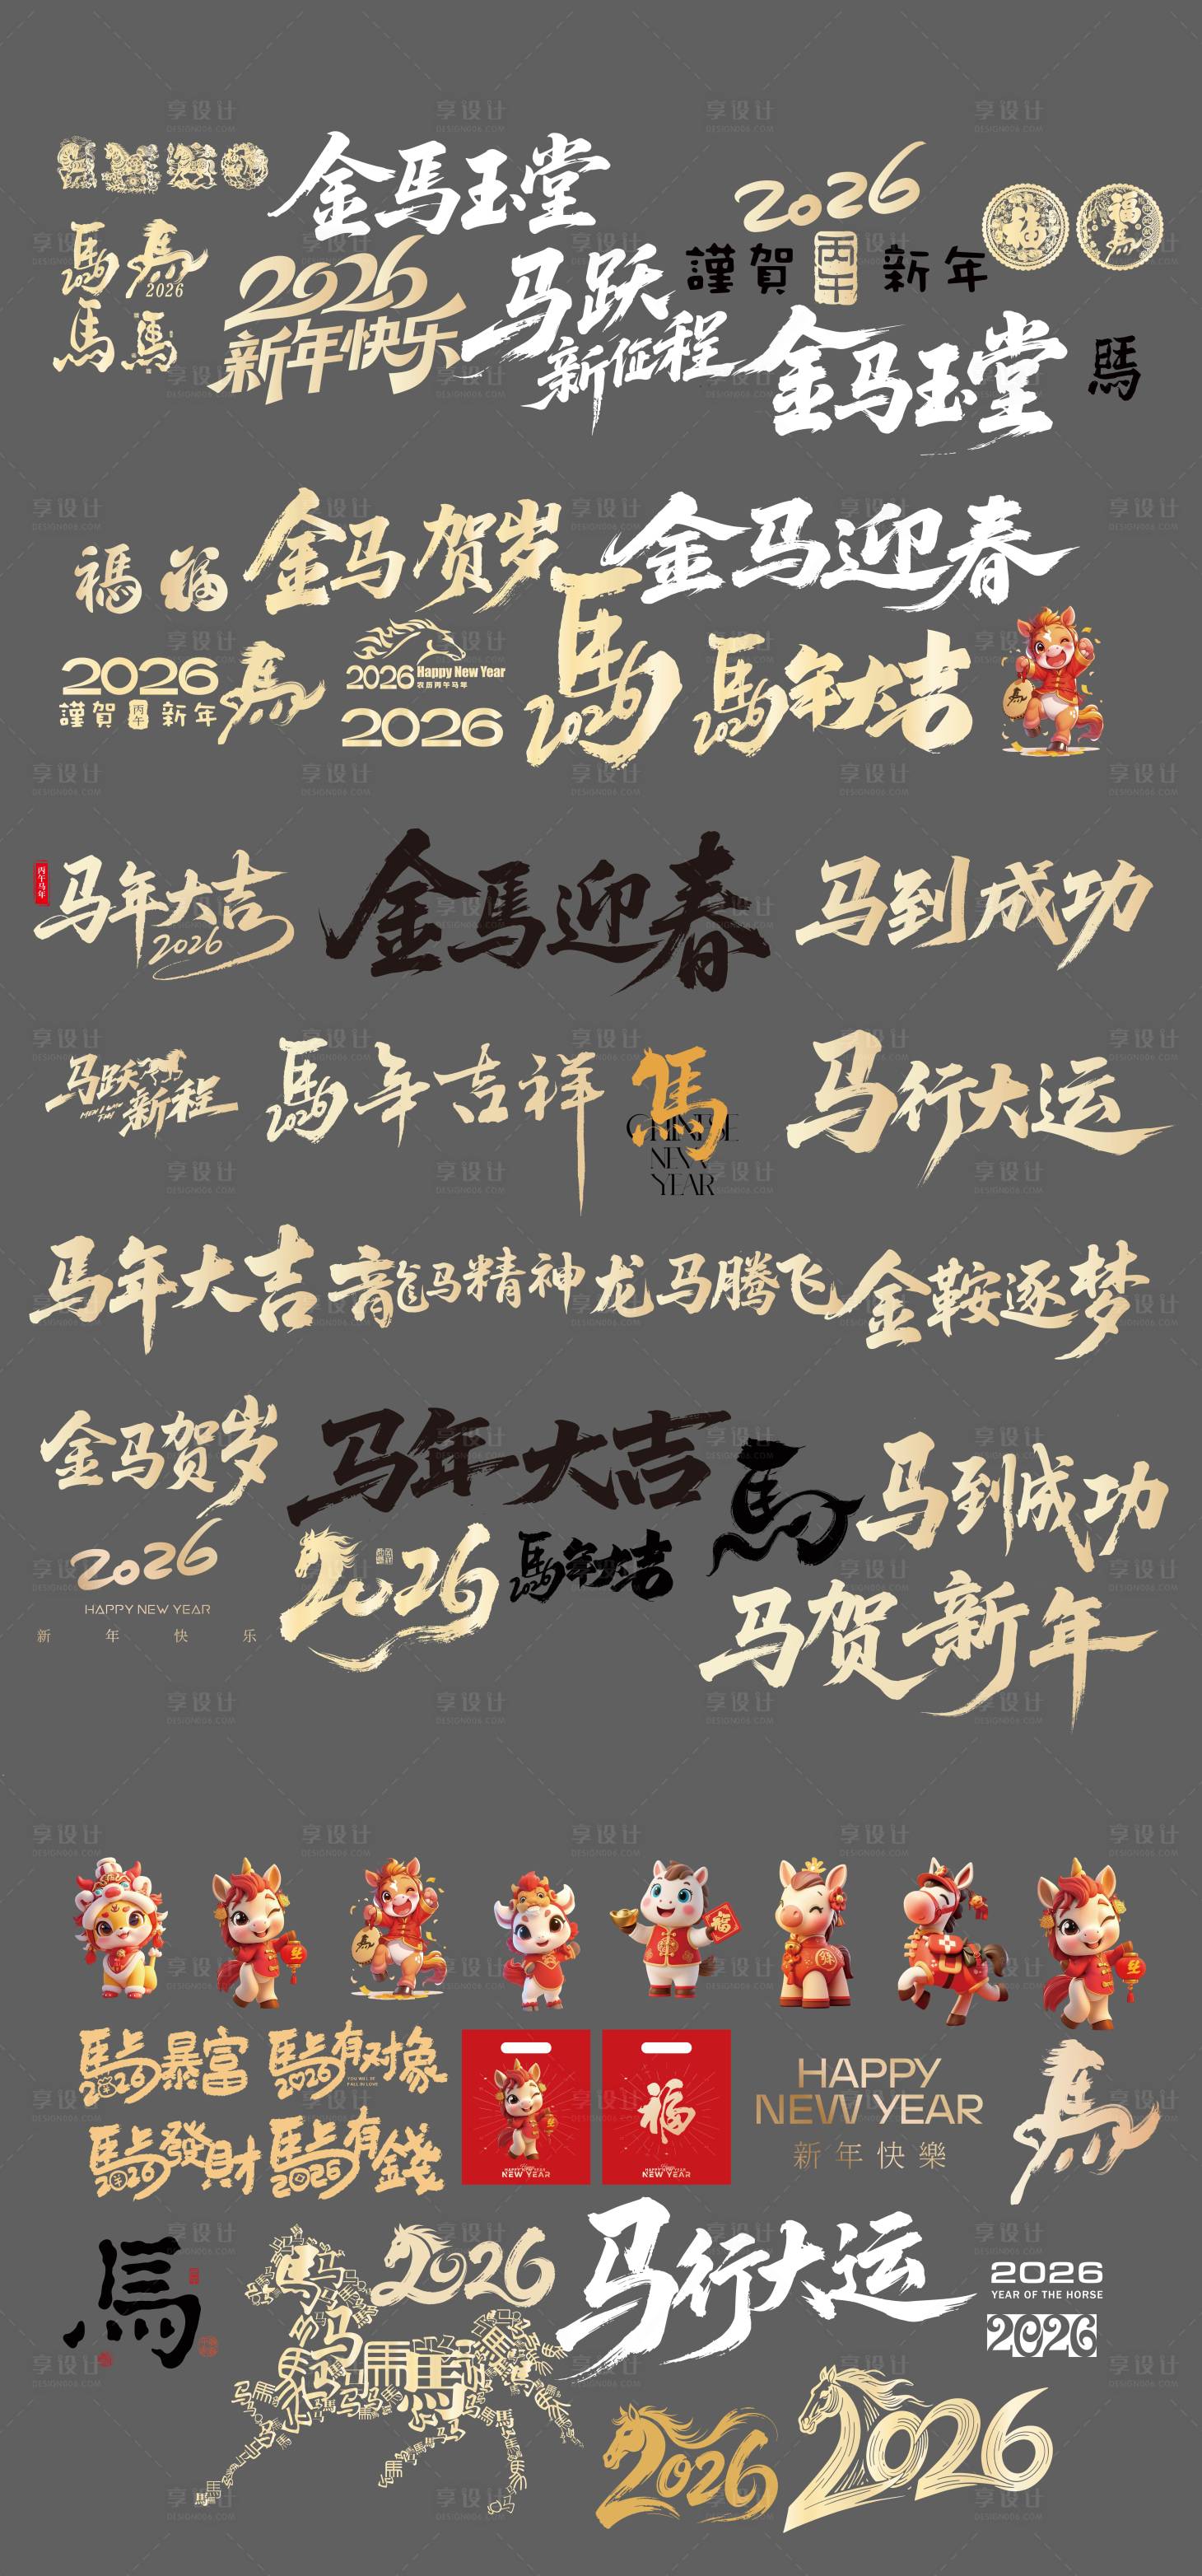 金馬玉堂
2026
福
福馬
馬2026
馬
2026
2026
新年快乐
马跃
新征程
謹賀 丙午 新年
馬
馬
金马玉堂
馬
福
福
金马贺岁
金马迎春
2026
謹賀 丙午 新年
馬
2026 Happy New Year
农历丙午马年
2026
馬2026
馬2026年大吉
丙午马年
马年大吉
2026
金馬迎春
马到成功
马跃
新征程
馬2026年吉祥
馬
CHINESE
NEW
YEAR
马行大运
马年大吉
龍马精神
龙马腾飞
金鞍逐梦
金马贺岁
2026
HAPPY NEW YEAR
新年快乐
马年大吉
2026
馬2026年大吉
馬
马到成功
马贺新年
福
馬上暴富
2026
馬上有对象
2026
YOU WILL BE
FALL IN LOVE
馬上發財
2026
馬上有錢
2026
NEW YEAR
福
NEW YEAR
HAPPY
NEW YEAR
新年快樂
馬
馬
2026
马行大运
2026
YEAR OF THE HORSE
2026
2026
2026
享设计
DESIGN006.COM